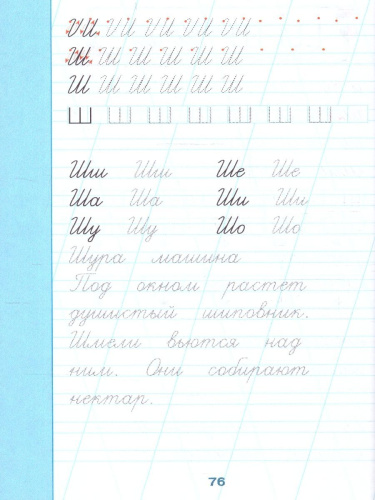 Ш Ш Ш Ш Ш
Ш Ш Ш Ш Ш Ш
Ш Ш Ш Ш Ш Ш
Ш Ш Ш Ш Ш Ш Ш
Ши Ши Ше Ше
Ша Ша Ши Ши
Шу Шу Шо Шо
Шура машина
Под окном растёт
душистый шиповник.
Шмели вьются над
ним. Они собирают
нектар.
76